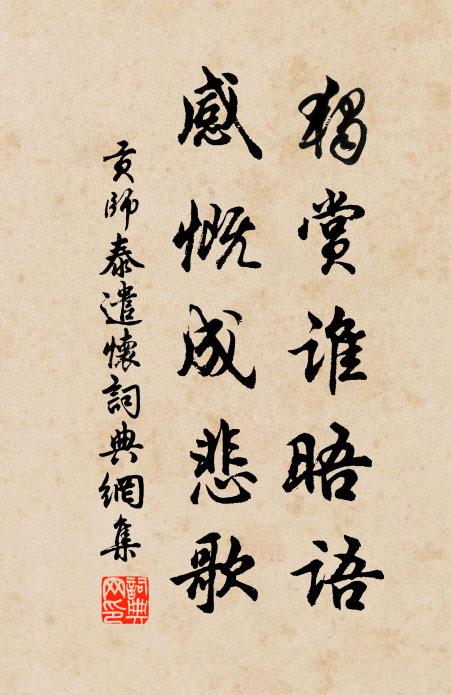 獨賞誰晤語
感慨成悲歌
貢師泰遣懷詞典網集
詞典网印